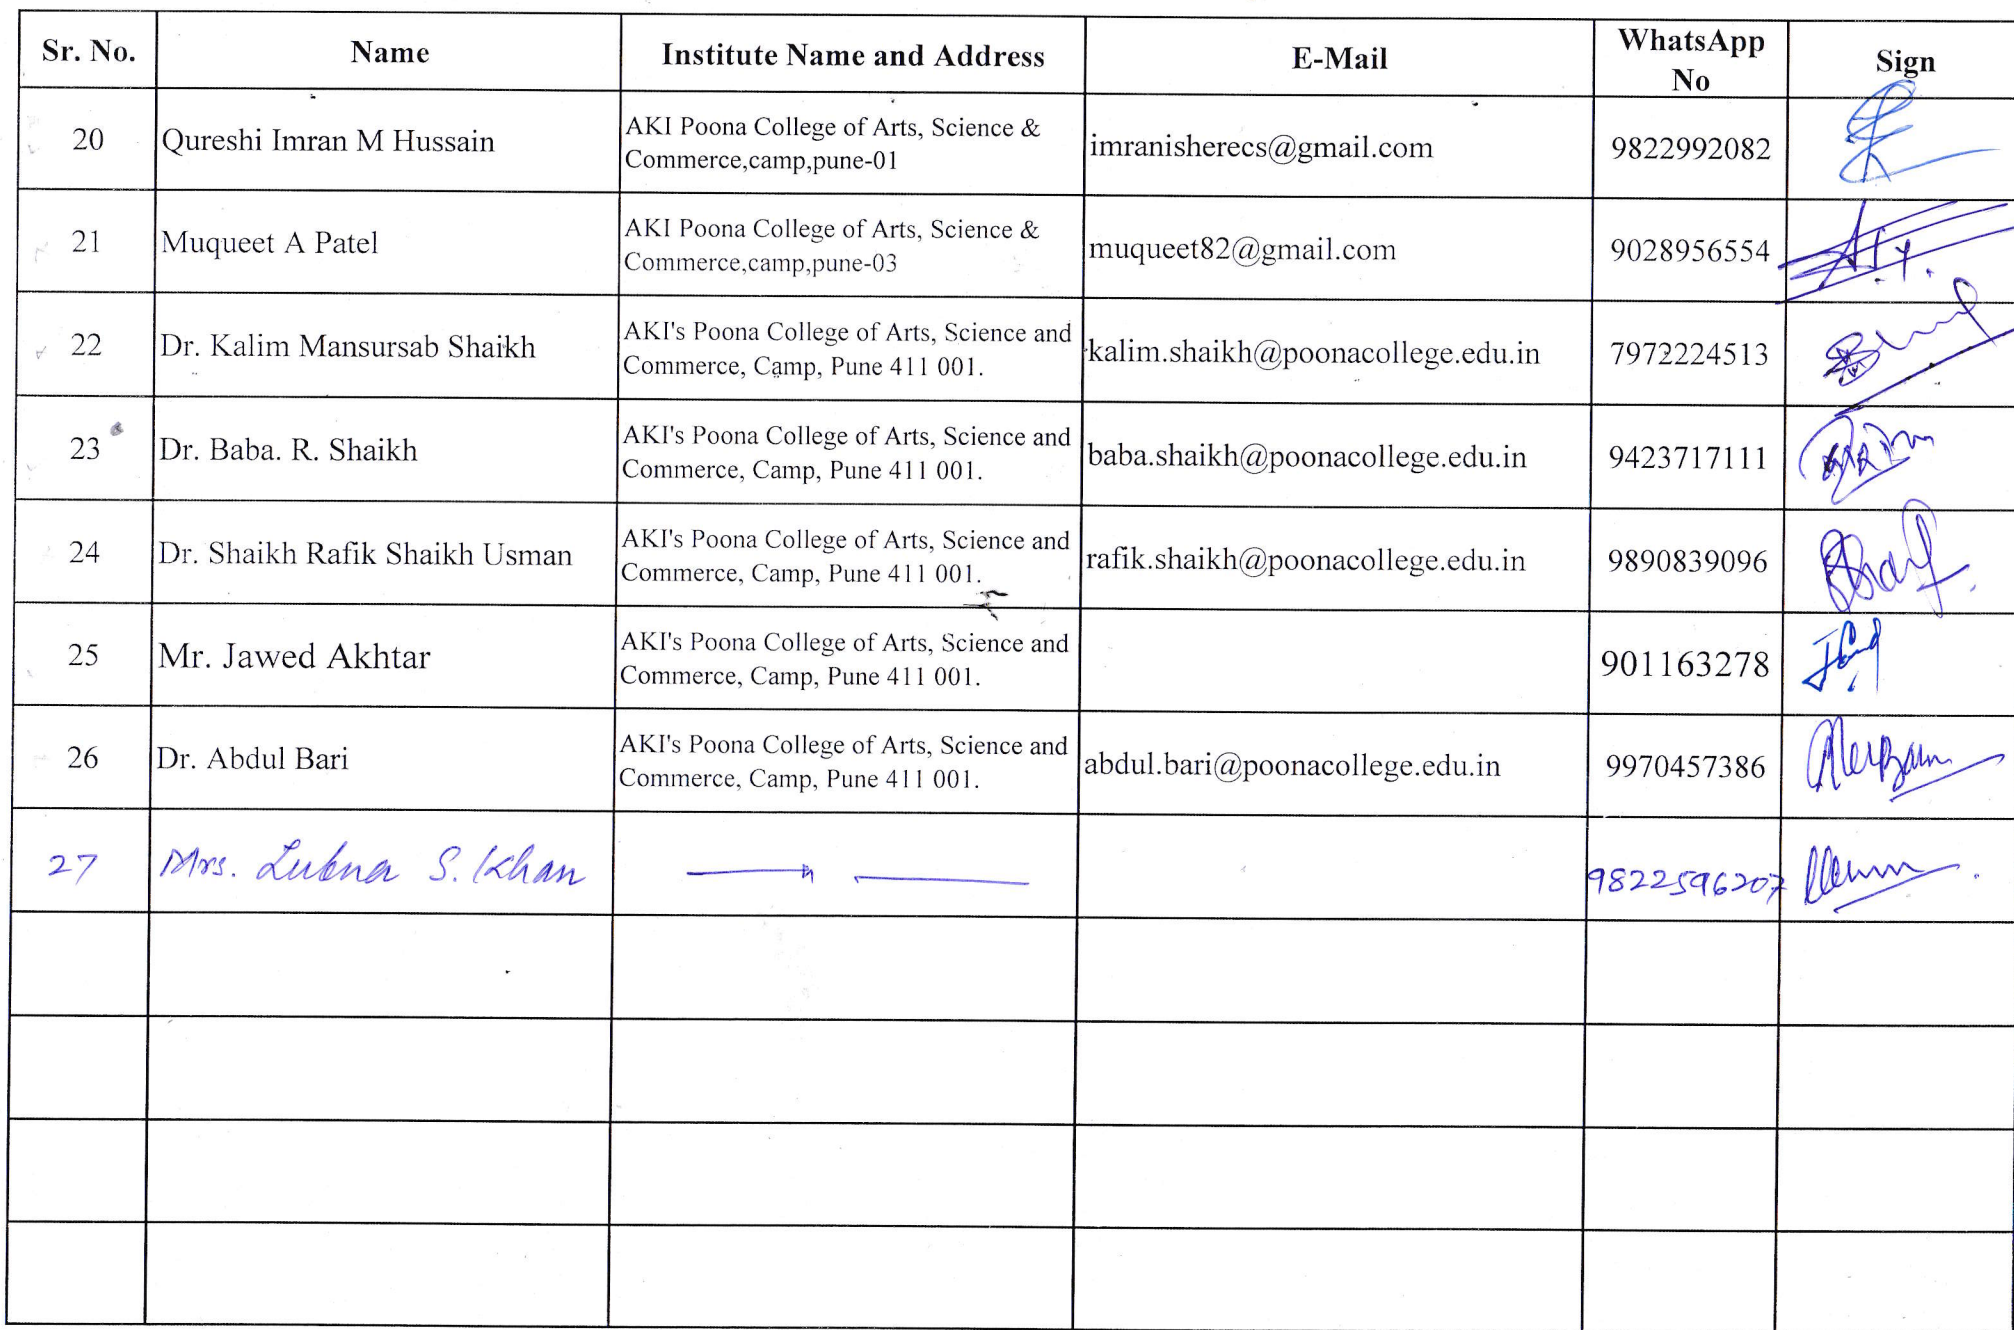 Sr. No. Name Institute Name and Address E-Mail WhatsApp No Sign
20 Qureshi Imran M Hussain AKI Poona College of Arts, Science &
Commerce,camp,pune-01 imranisherecs@gmail.com 9822992082
21 Muqueet A Patel AKI Poona College of Arts, Science &
Commerce,camp,pune-03 muqueet82@gmail.com 9028956554
22 Dr. Kalim Mansursab Shaikh AKI's Poona College of Arts, Science and
Commerce, Camp, Pune 411 001. kalim.shaikh@poonacollege.edu.in 7972224513
23 Dr. Baba. R. Shaikh AKI's Poona College of Arts, Science and
Commerce, Camp, Pune 411 001. baba.shaikh@poonacollege.edu.in 9423717111
24 Dr. Shaikh Rafik Shaikh Usman AKI's Poona College of Arts, Science and
Commerce, Camp, Pune 411 001. rafik.shaikh@poonacollege.edu.in 9890839096
25 Mr. Jawed Akhtar AKI's Poona College of Arts, Science and
Commerce, Camp, Pune 411 001. 901163278
26 Dr. Abdul Bari AKI's Poona College of Arts, Science and
Commerce, Camp, Pune 411 001. abdul.bari@poonacollege.edu.in 9970457386
27 Mrs. Lubna S. Khan — " — 9822596207